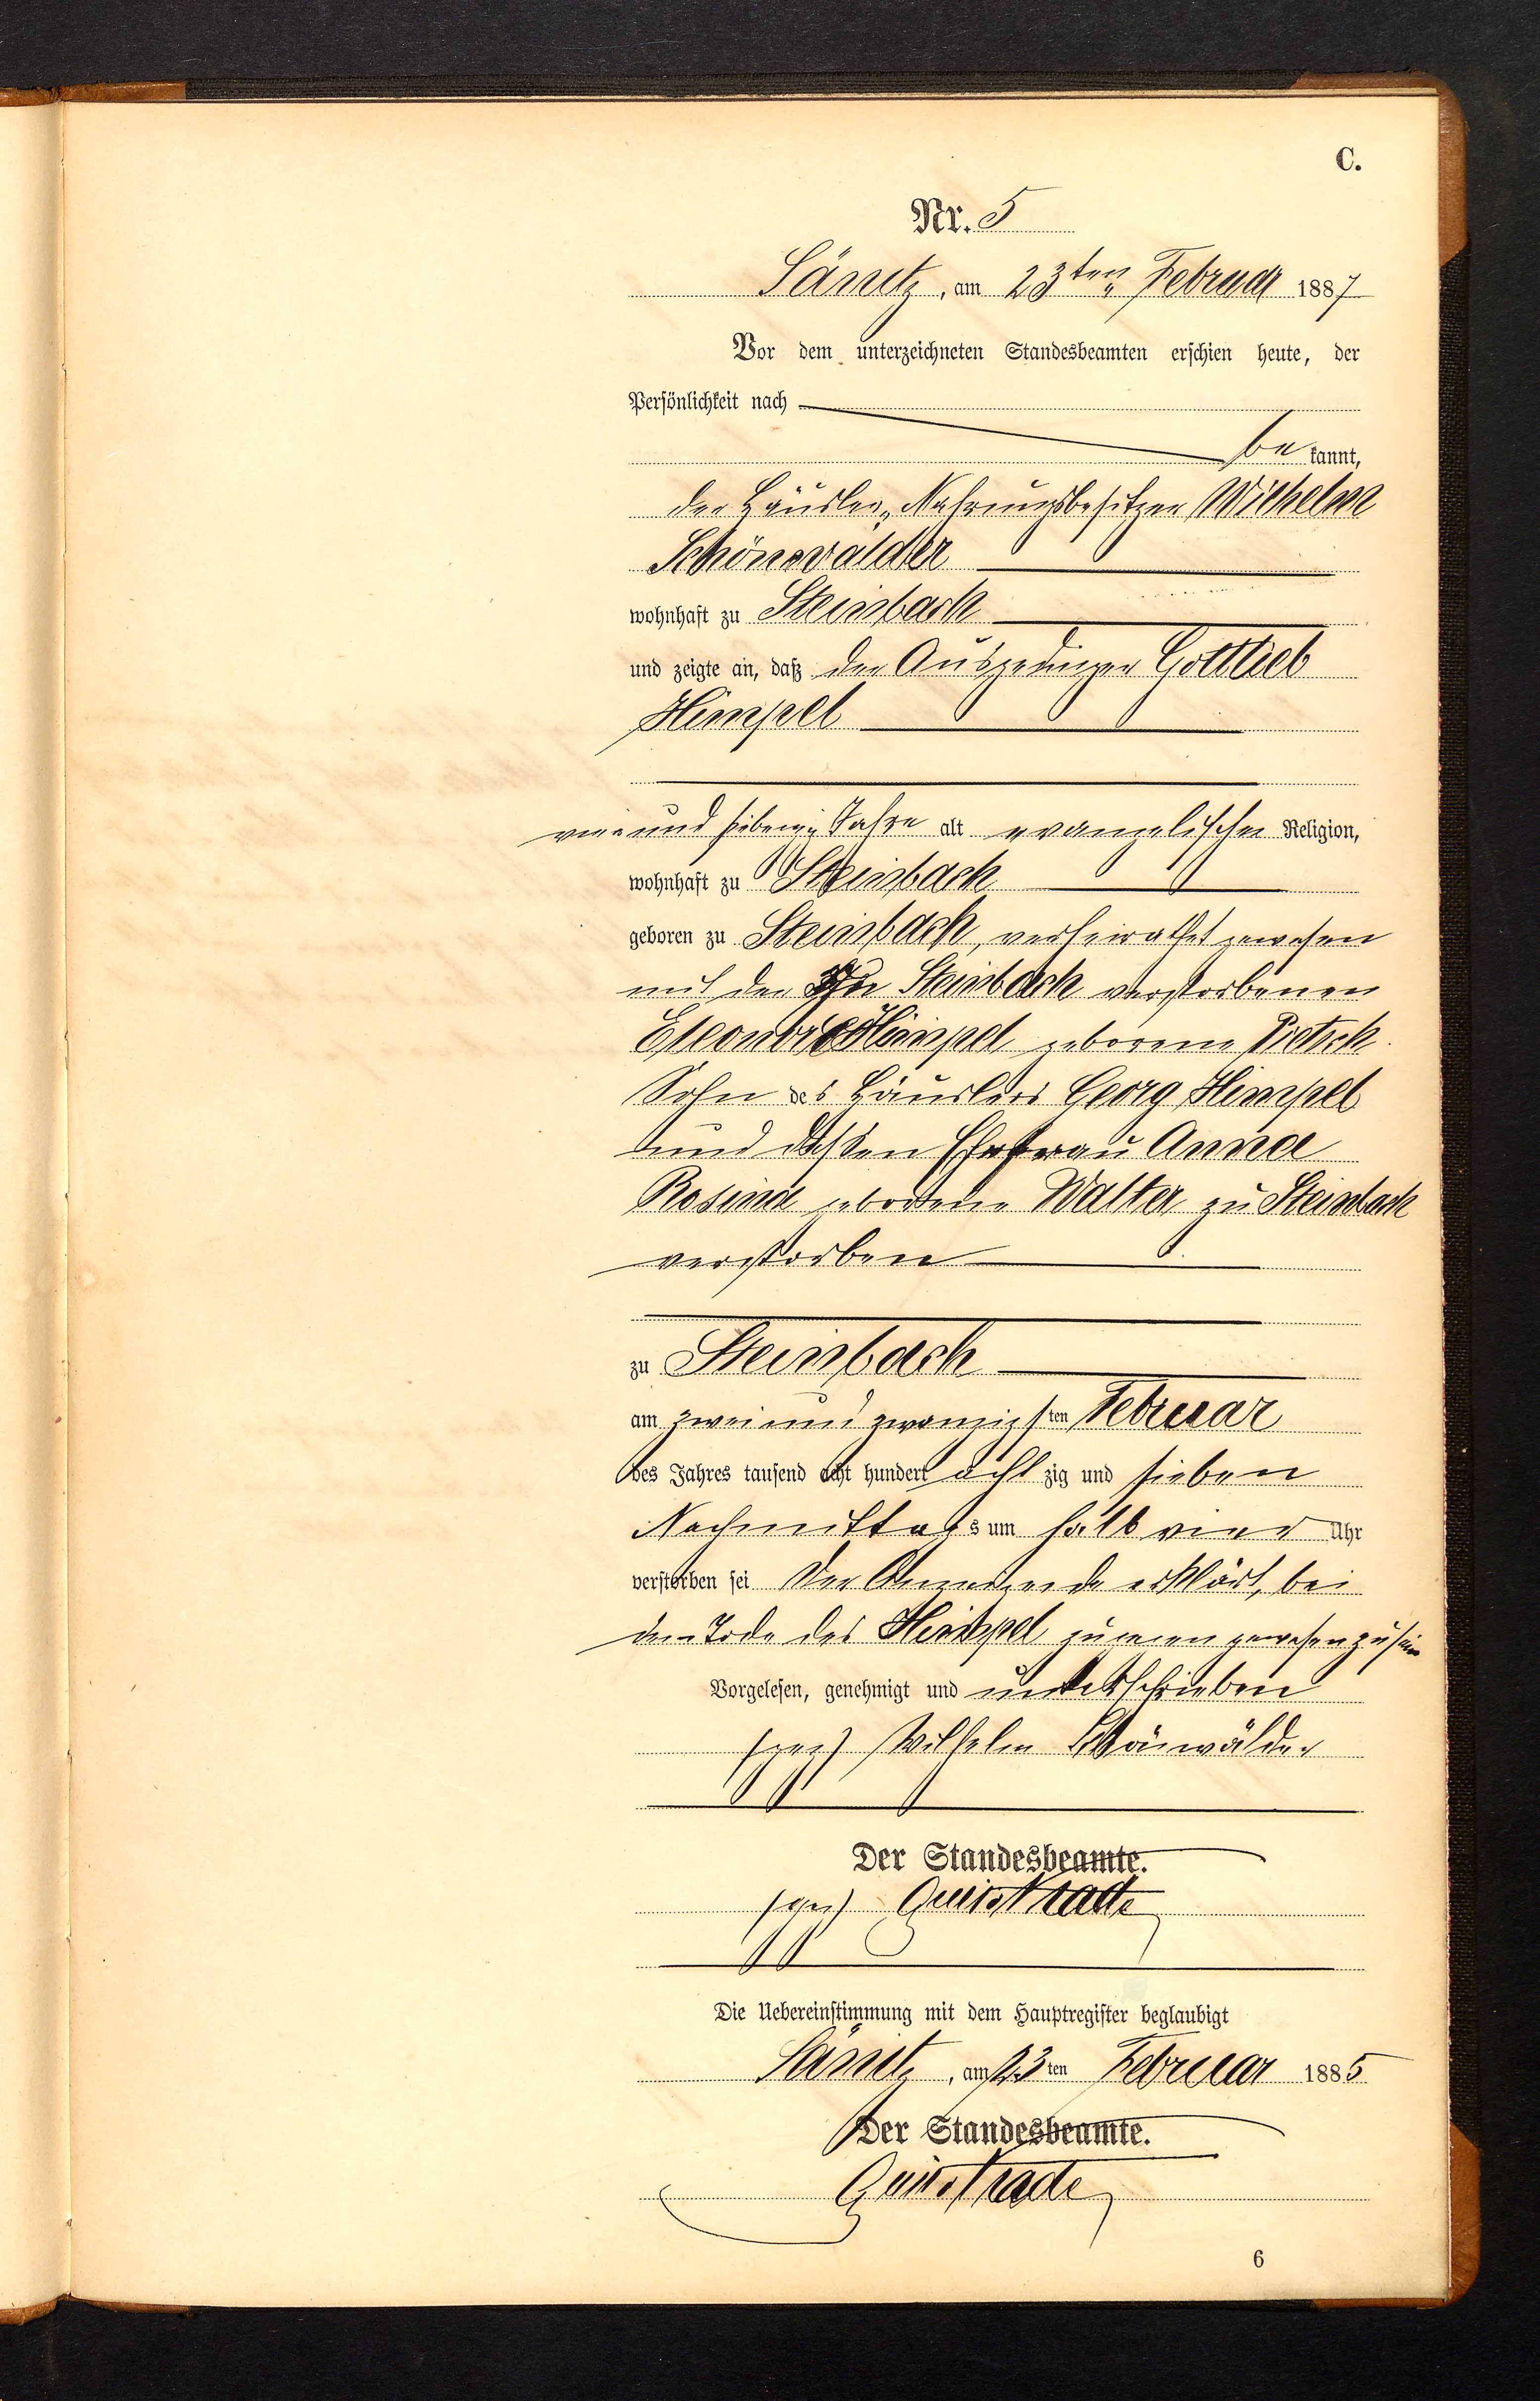 C.
Nr. 5
Sänitz, am 23ten Februar 1887
Vor dem unterzeichneten Standesbeamten erschien heute, der
Persönlichkeit nach
be kannt,
der Häusler, Nahrungsbesitzer Wilhelm
Schönwälder
wohnhaft zu Steinbach
und zeigte an, daß der Auszedinger Gottlieb
Himpel
vierundsiebenzig Jahre alt evangelischer Religion,
wohnhaft zu Steinbach
geboren zu Steinbach, verheirathet gewesen
mit der zu Steinbach verstorbenen
Eleonore Himpel geborene Pietsch
Sohn des Häuslers Georg Himpel
und dessen Ehefrau Anna
Rosina geborene Walter zu Steinbach
verstorben
zu Steinbach
am zweiundzwanzigsten Februar
des Jahres tausend acht hundert achtzig und sieben
Nachmittags um halb vier Uhr
verstorben sei Der Anzeigende erklärt, bei
dem Tode des Himpel zugegen gewesen zu sein
Vorgelesen, genehmigt und unterschrieben
(gez) Wilhelm Schönwälder
Der Standesbeamte.
(gez)
Die Uebereinstimmung mit dem Hauptregister beglaubigt
Sänitz, am 23ten Februar 1885
Der Standesbeamte.
6